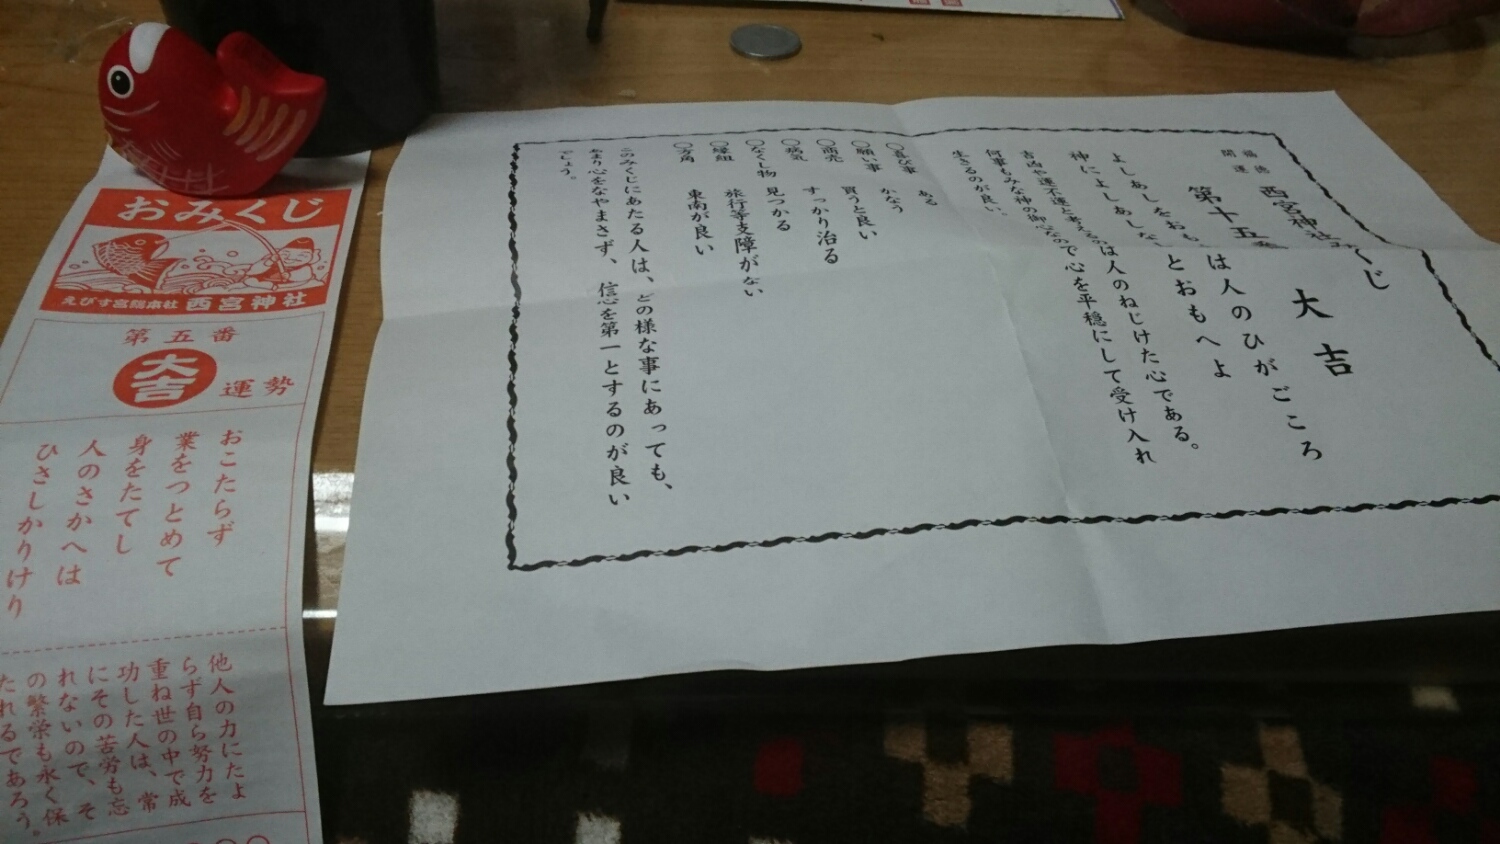 おみくじ
えびす宮総本社 西宮神社
第五番
大吉
運勢
おこたらず
業をつとめて
身をたてし
人のさかへは
ひさしかりけり
他人の力にたよ
らず自ら努力を
重ね世の中で成
功した人は、常
にその苦労も忘
れないので、そ
の繁栄も永く保
たれるであろう。
福徳
開運
西宮神社みくじ
第十五番
大吉
よしあしをおも
は人のひがごころ
神によしあしな
とおもへよ
吉凶や運不運と考えるのは人のねじけた心である。
何事もみな神の御心なので心を平穏にして受け入れ
生きるのが良い。
○喜び事 ある
○願い事 かなう
○商売 買うと良い
○病気 すっかり治る
○なくし物 見つかる
○縁組 旅行等支障がない
○方角 東南が良い
このみくじにあたる人は、どの様な事にあっても、
あまり心をなやまさず、信心を第一とするのが良い
でしょう。